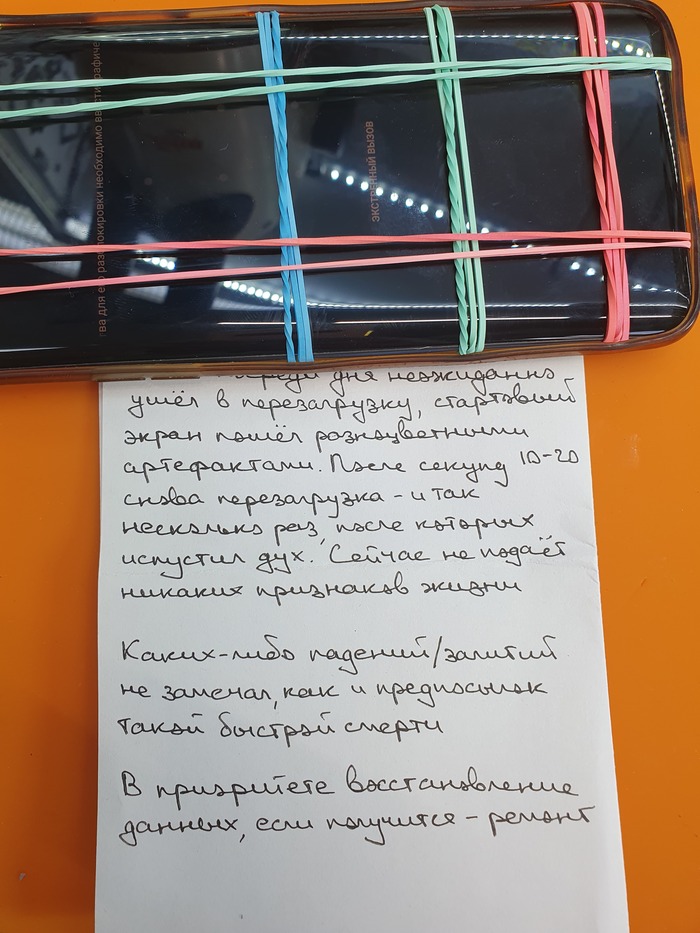 тва для его разблокировки необходимо ввести графиче
ЭКСТРЕННЫЙ ВЫЗОВ
среди дня неожиданно
ушёл в перезагрузку, стартовый
экран пошёл разноцветными
артефактами. После секунд 10-20
снова перезагрузка - и так
несколько раз, после которых
испустил дух. Сейчас не подаёт
никаких признаков жизни
Каких-либо падений/залитий
не замечал, как и предпосылок
такой быстрой смерти
В приоритете восстановление
данных, если получится - ремонт